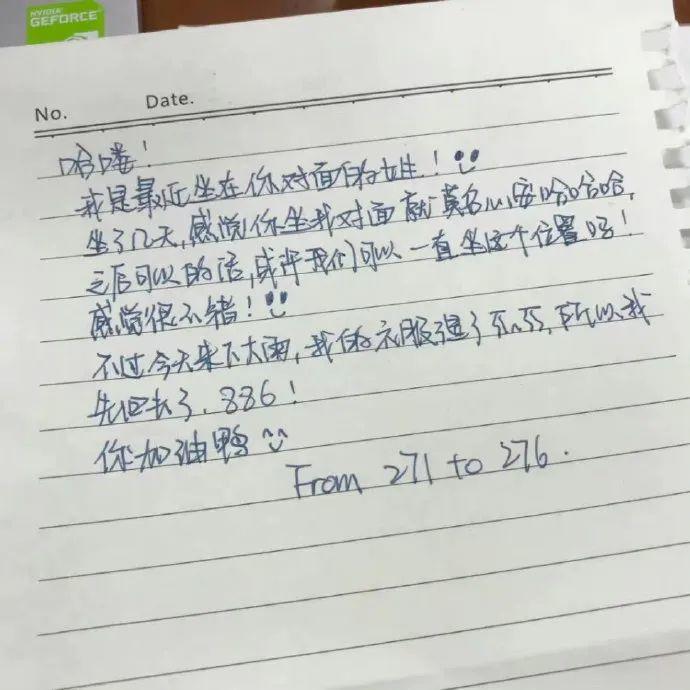 NVIDIA
GEFORCE
No.
Date.
哈喽!
我是最近坐在你对面的女生!
坐了几天,感觉你坐我对面就莫名心安哈哈哈,
之后可以的话,或许我们可以一直坐这个位置呀!
感觉很不错!
不过今天来下大雨,我的衣服湿了,所以我
先回去了.886!
你加油鸭
From 271 to 276.